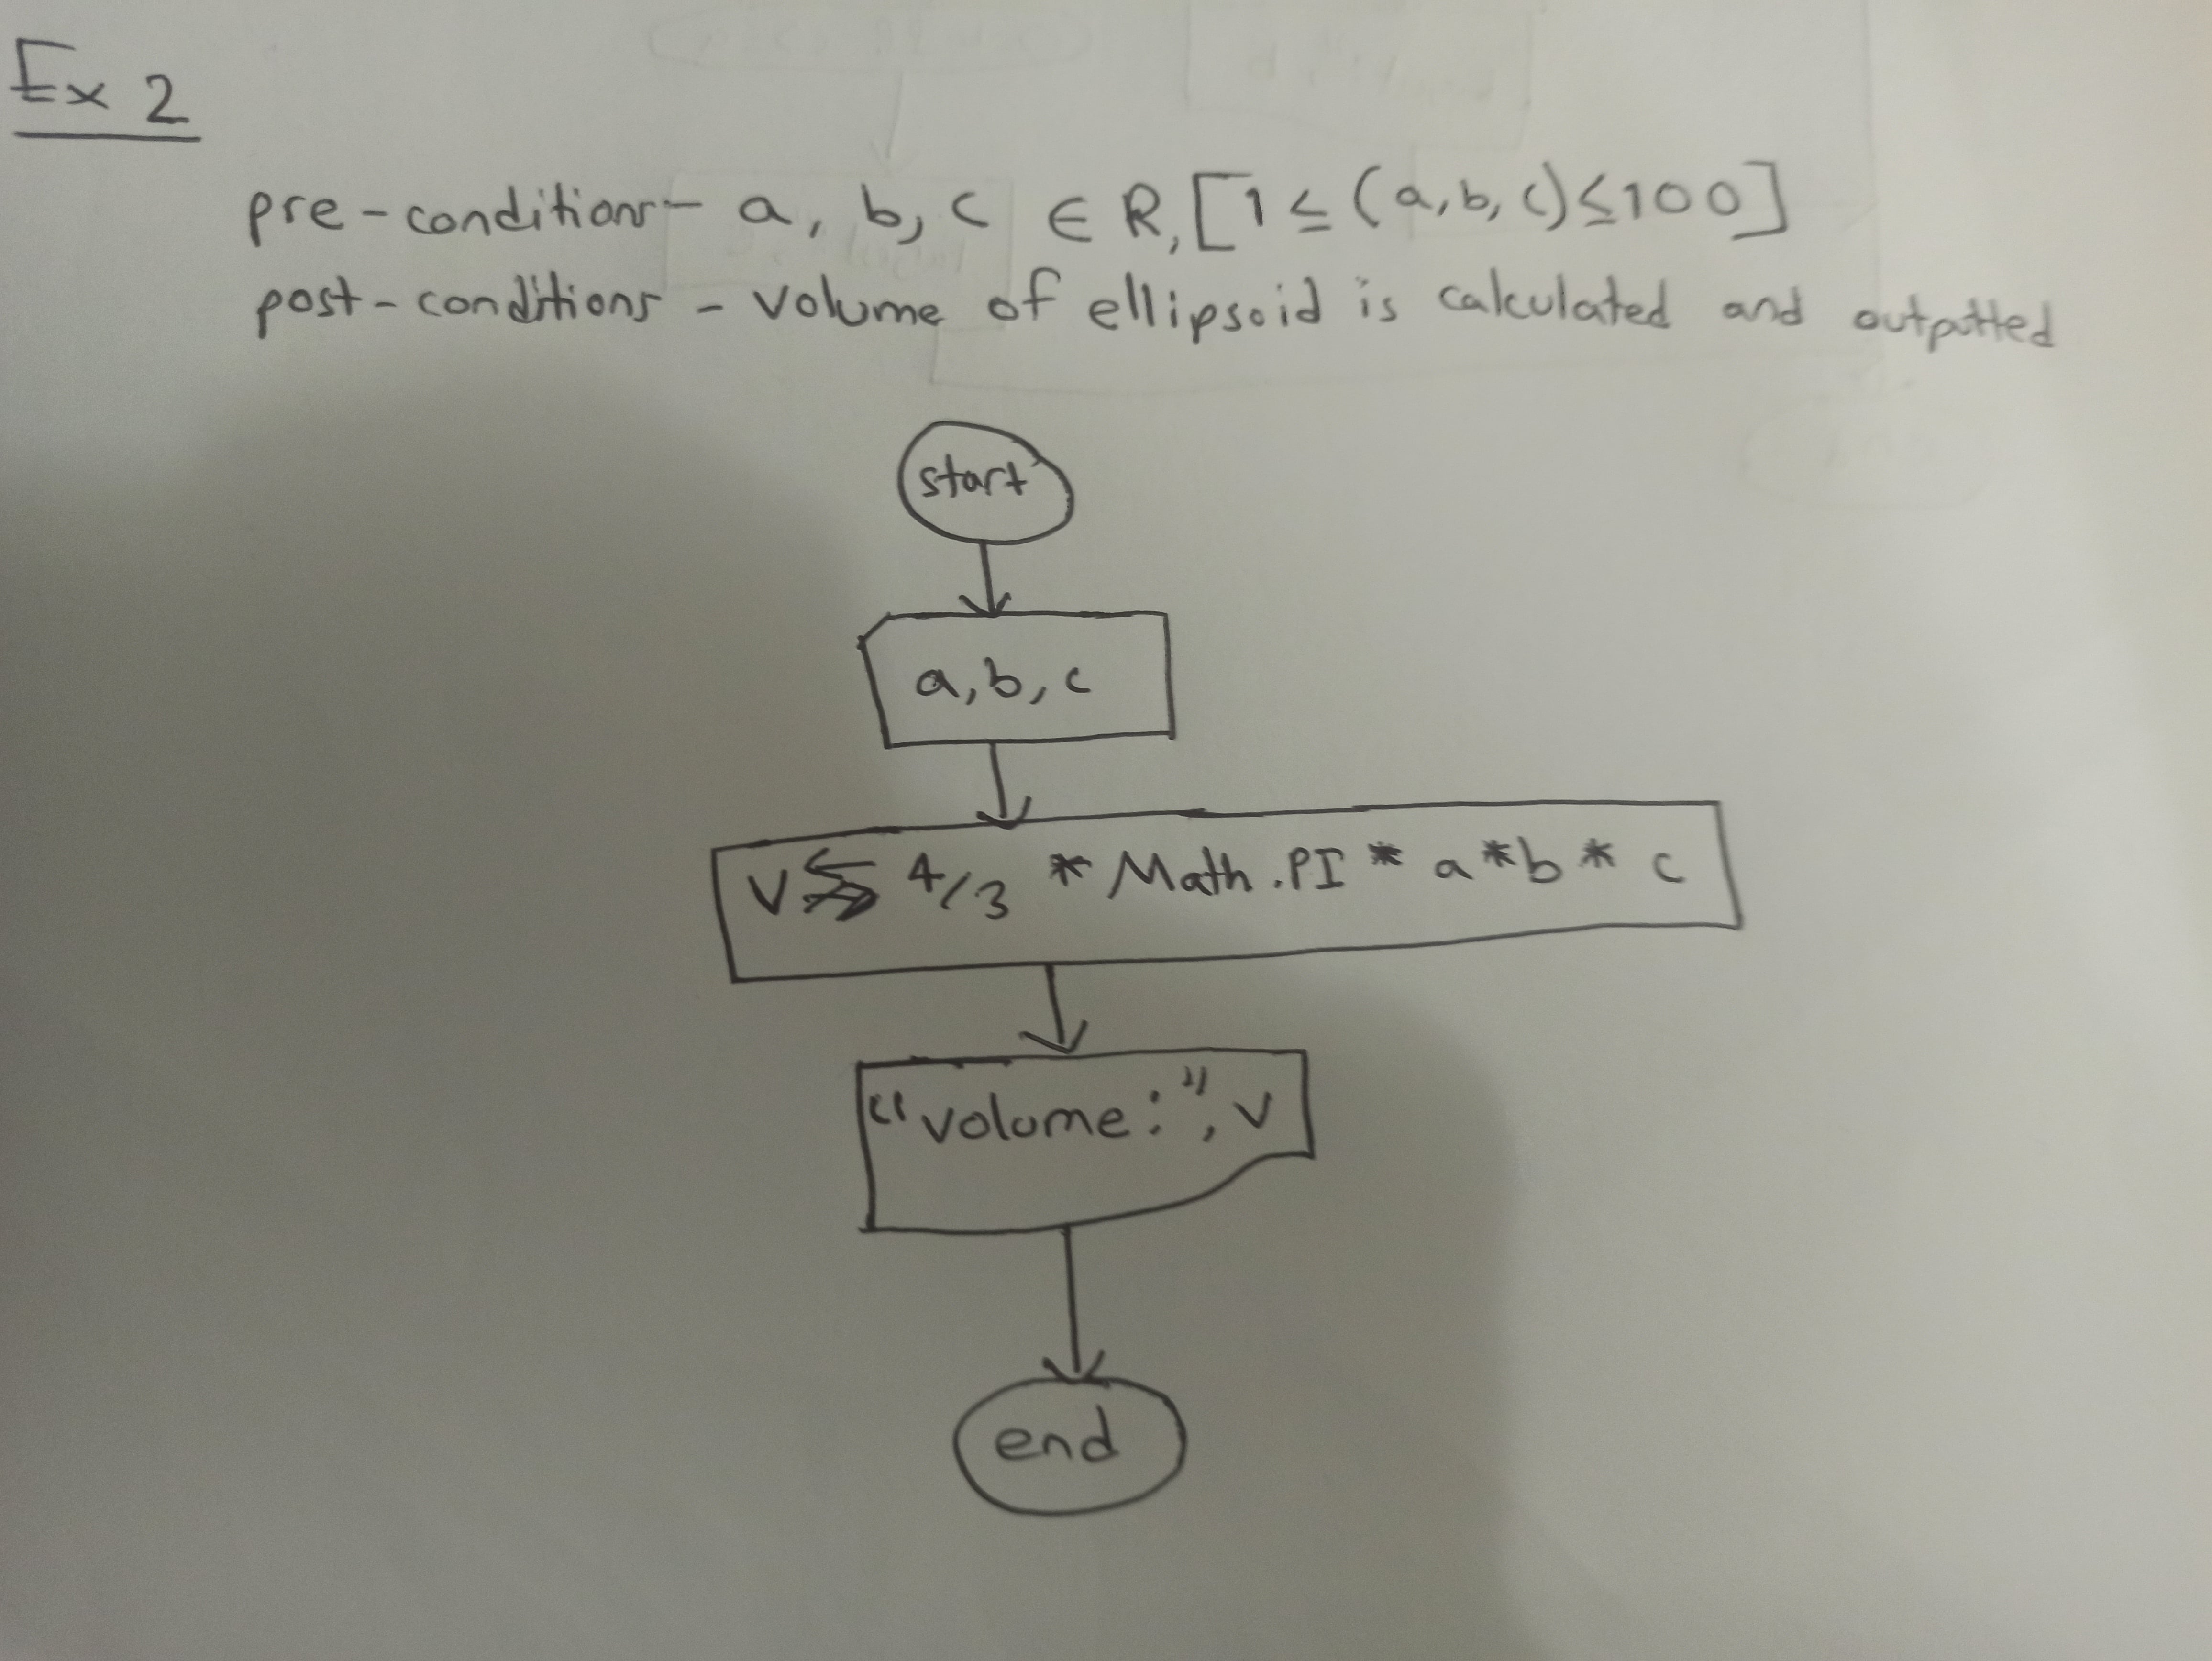 Ex 2
pre-conditions - a, b, c ∈ R, [1 ≤ (a, b, c) ≤ 100]
post-conditions - volume of ellipsoid is calculated and outputted
start
a, b, c
V ← 4/3 * Math.PI * a * b * c
"volume:", v
end